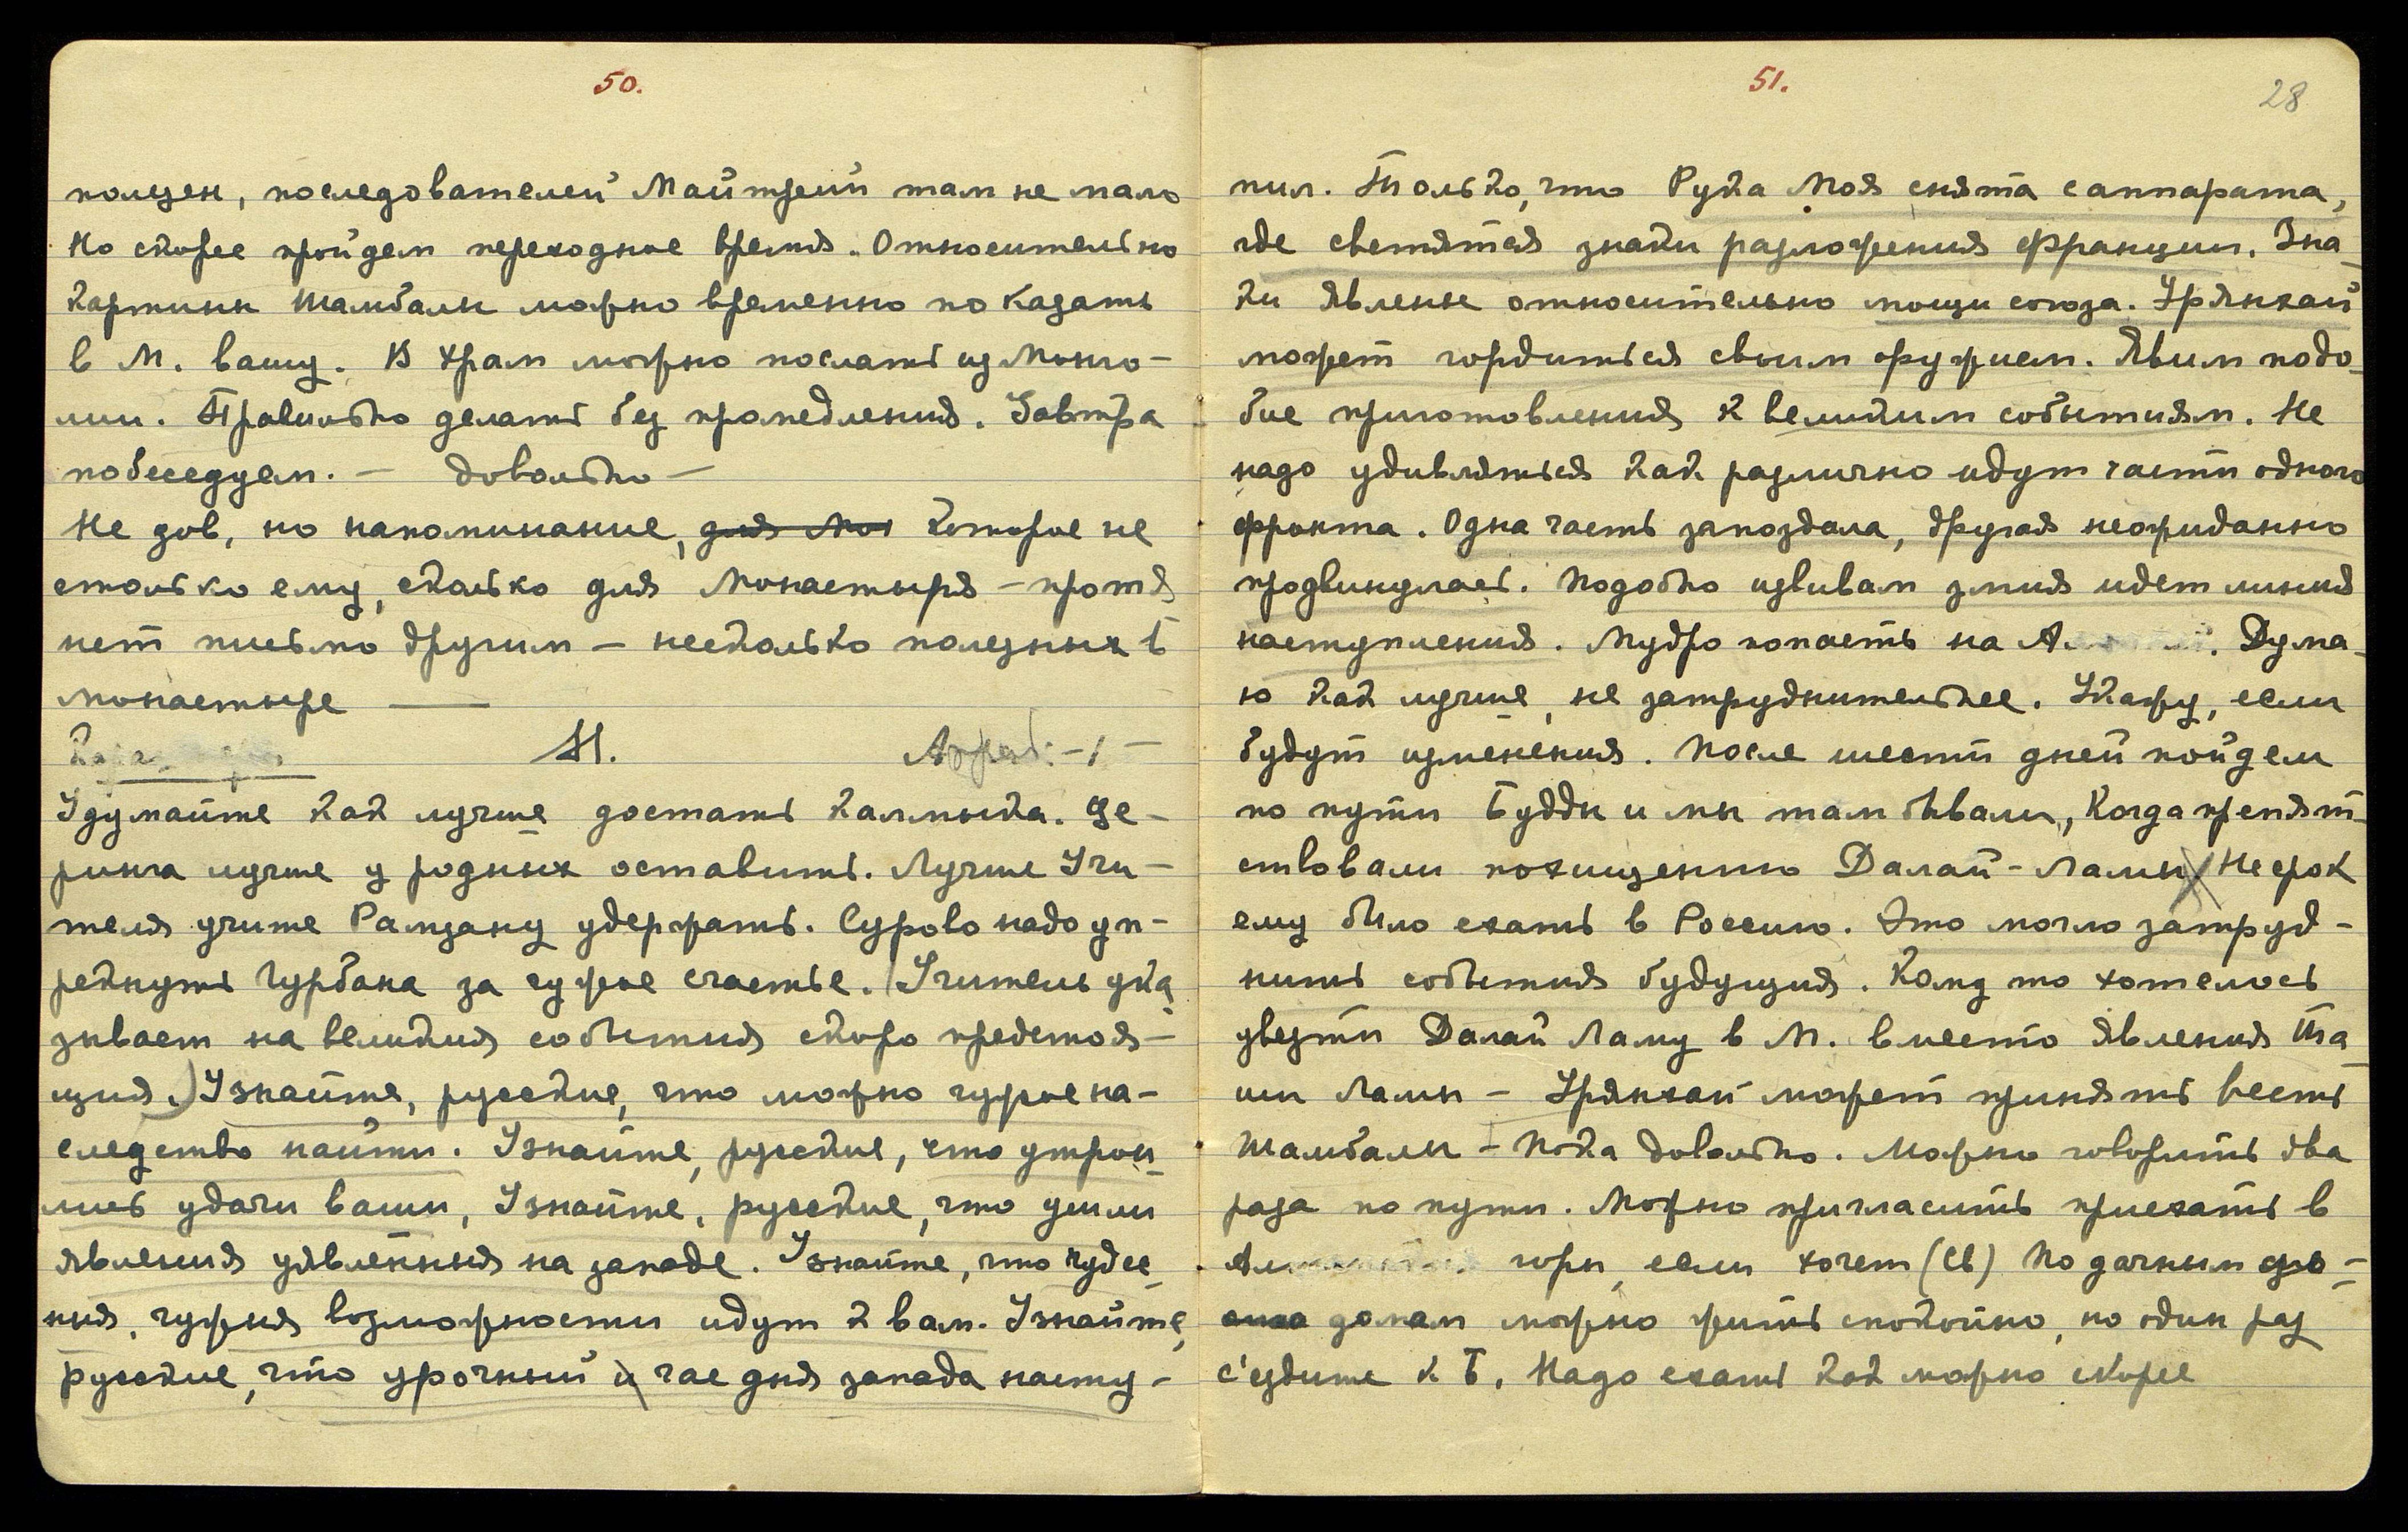 50.
полезен, последователей Майтрейи там не мало
Но скорее пройдем переходное время. Относительно
картины Шамбалы можно временно показать
в М. вашу. В храм можно послать из Монго-
лии. Правильно делать без промедления. Завтра
побеседуем. — довольно —
Не зов, но напоминание, для мон которое не
столько ему, сколько для монастыря – протя
нет письмо другим – несколько полезных в
монастыре —
11. -1-
Удумайте как лучше достать калмыка. Це-
ринга лучше у родных оставить. Лучше Учи-
теля учите Рамзану удержать. Сурово надо уп-
рекнуть Чурбана за чужое счастье. (Учитель ука
зывает на великия события скоро предстоя-
щия.) Узнайте, русские, что можно чужое на-
следство найти. Узнайте, русские, что утрои
лись удачи ваши, Узнайте, русские, что ушли
явления уявленныя на западе. Узнайте, что чудес
ныя, чужия возможности идут к вам. Узнайте,
русские, что урочный и час дня запада насту-
51.
28
пил. Только, что Рука Моя снята с аппарата,
где светятся знаки разложения Франции. Зна-
ки явлены относительно мощи союза. Урянхай
может гордиться своим оружием. Явим подо-
бие приготовления к великим событиям. Не
надо удивляться как различно идут части одного
фронта. Одна часть запоздала, другая неожиданно
продвинулась. Подобно извивам змия идет линия
наступления. Мудро попасть на А. Дума-
ю как лучше, не затруднительнее. Укажу, если
будут изменения. После шести дней пойдем
по пути Будды и мы там бывали, когда препят-
ствовали похищению Далай-Ламы Не срок
ему было ехать в Россию. Это могло затруд-
нить события будущия. Кому то хотелось
увезти Далай Ламу в М. вместо явления Та
ши Ламы – Урянхай может принять весть
Шамбалы – Пока довольно. Можно говорить два
раза по пути. Можно пригласить приехать в
горы, если хочет (Св) По дачным
домам можно жить спокойно, но один раз
с'ездите к Б. Надо ехать как можно скорее